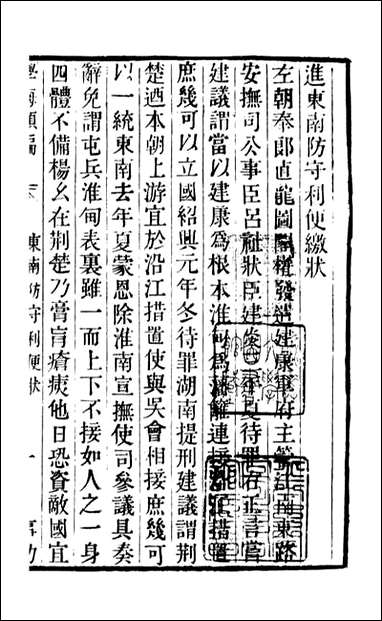 進東南防守利便繳狀
左朝奉郎直龍圖閣權發遣建康軍府主管江南東路
安撫司公事臣呂祉狀臣建炎二年夏待罪右正言嘗
建議謂當以建康為根本淮甸為藩籬連接沿江措置
庶幾可以立國紹興元年冬待罪湖南提刑建議謂荆
楚迺本朝上游宜於沿江措道使與吳會相接庶幾可
以一統東南去年夏蒙恩除淮南宣撫使司參議具奏
辭免謂屯兵淮甸表裏雖一而上下不接如人之一身
四體不備楊幺在荆楚乃膏肓瘡痍他日恐資敵國宜
學海類編
東南防守利便狀
一